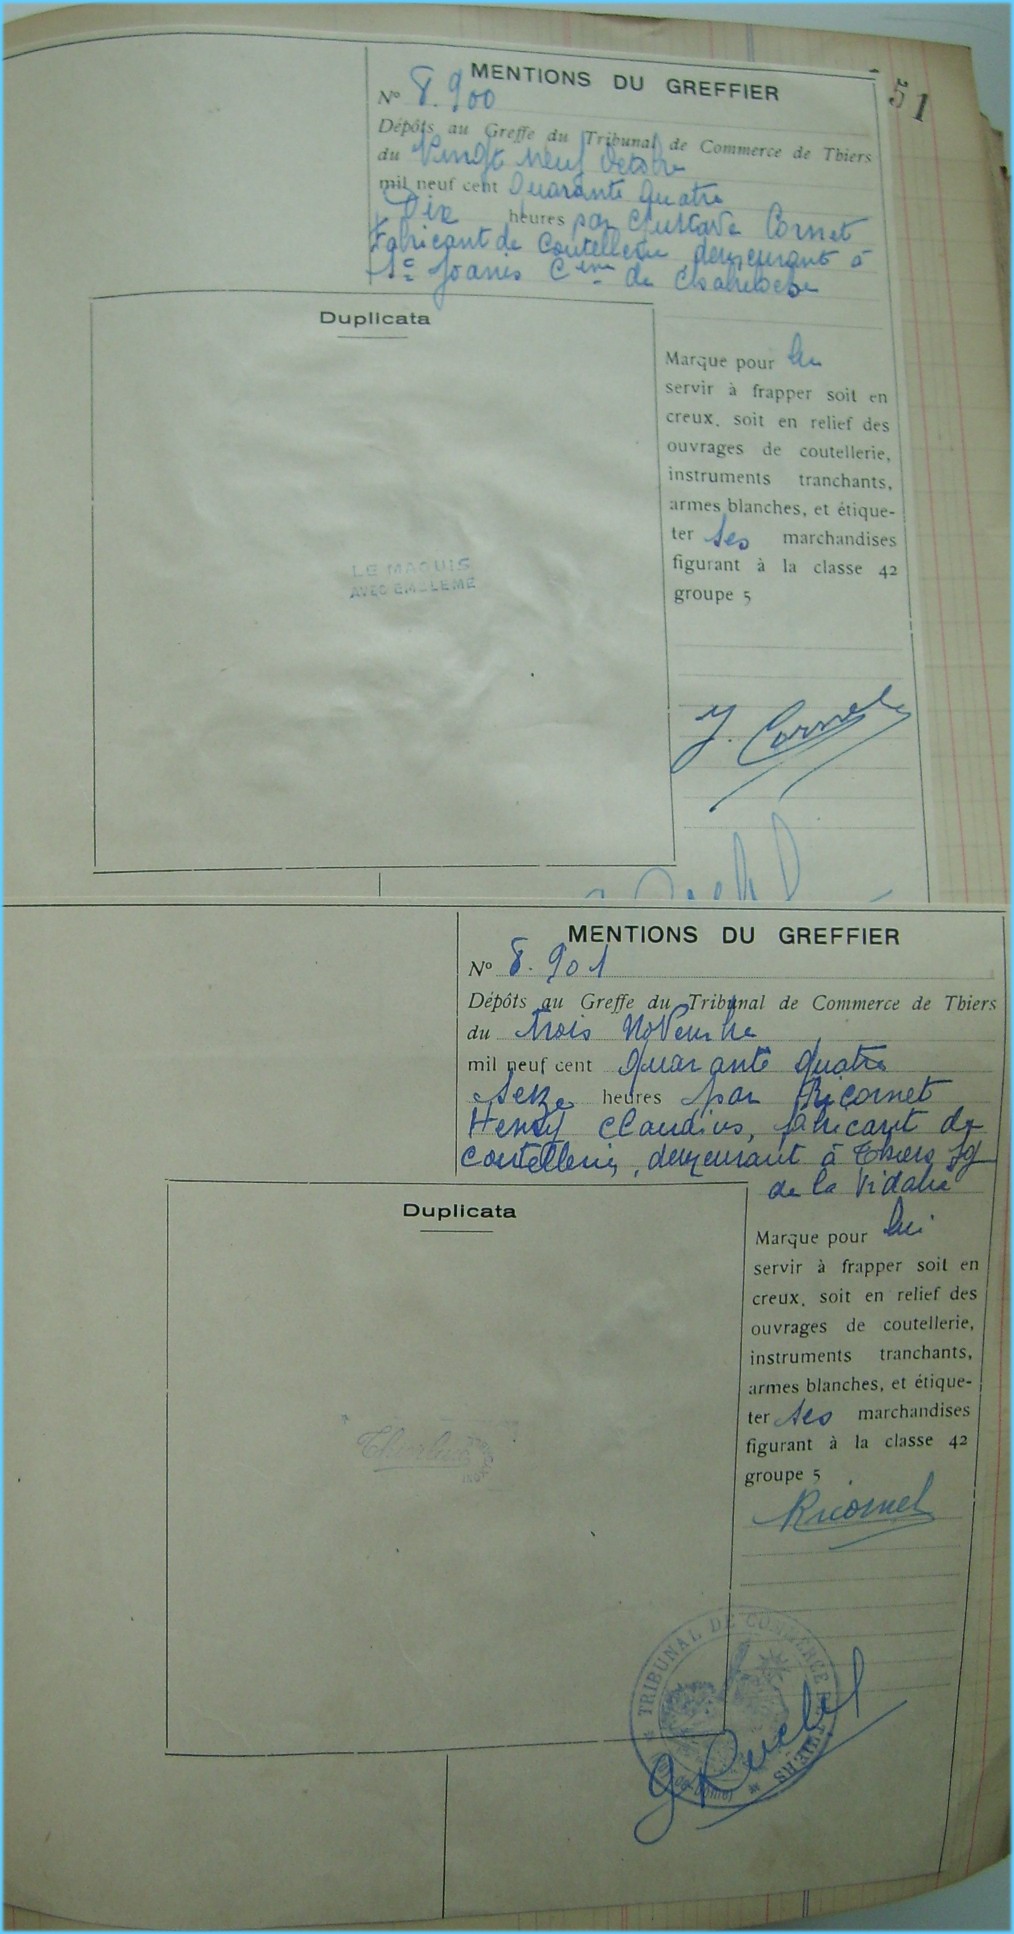 51
MENTIONS DU GREFFIER
Nº 8.900
Dépôts au Greffe du Tribunal de Commerce de Thiers
du Vingt neuf Octobre
mil neuf cent Quarante quatre
Dix heures par Gustave Cornet
Fabricant de Coutellerie demeurant à
Joanis de
Duplicata
LE MAQUIS
AVEC EMBLEME
Marque pour lui
servir à frapper soit en
creux, soit en relief des
ouvrages de coutellerie,
instruments tranchants,
armes blanches, et étique-
ter ses marchandises
figurant à la classe 42
groupe 5
Cornet
MENTIONS DU GREFFIER
Nº 8.901
Dépôts au Greffe du Tribunal de Commerce de Thiers
du trois Novembre
mil neuf cent quarante quatre
Seize heures par Ricornet
Henry Claudius, fabricant de
coutellerie, demeurant à Thiers
de la Vidalie
Duplicata
Marque pour lui
servir à frapper soit en
creux, soit en relief des
ouvrages de coutellerie,
instruments tranchants,
armes blanches, et étique-
ter ses marchandises
figurant à la classe 42
groupe 5
Ricornet
TRIBUNAL DE COMMERCE DE THIERS